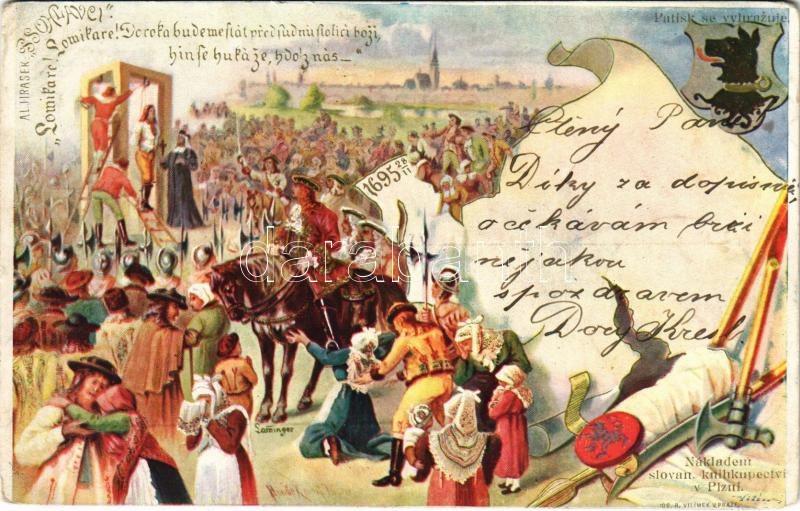 AL. JIRASEK „PSOHLAVCI"
„Lomikare! Lomikare! Do roka budeme stát před súdnú stolicí boží,
hin se huká že, hdo z nás —"
Patisk se vyhrazuje.
1695 28/11
Ctěný Pane
Díky za dopisnici
očekávám brzi
nejakou
s pozdravem
Dory Kresl
Laminger
darabanth
Nákladem
slovan. knihkupectví
v Plzni.
JOS. R. VILÍMEK V PRAZE.